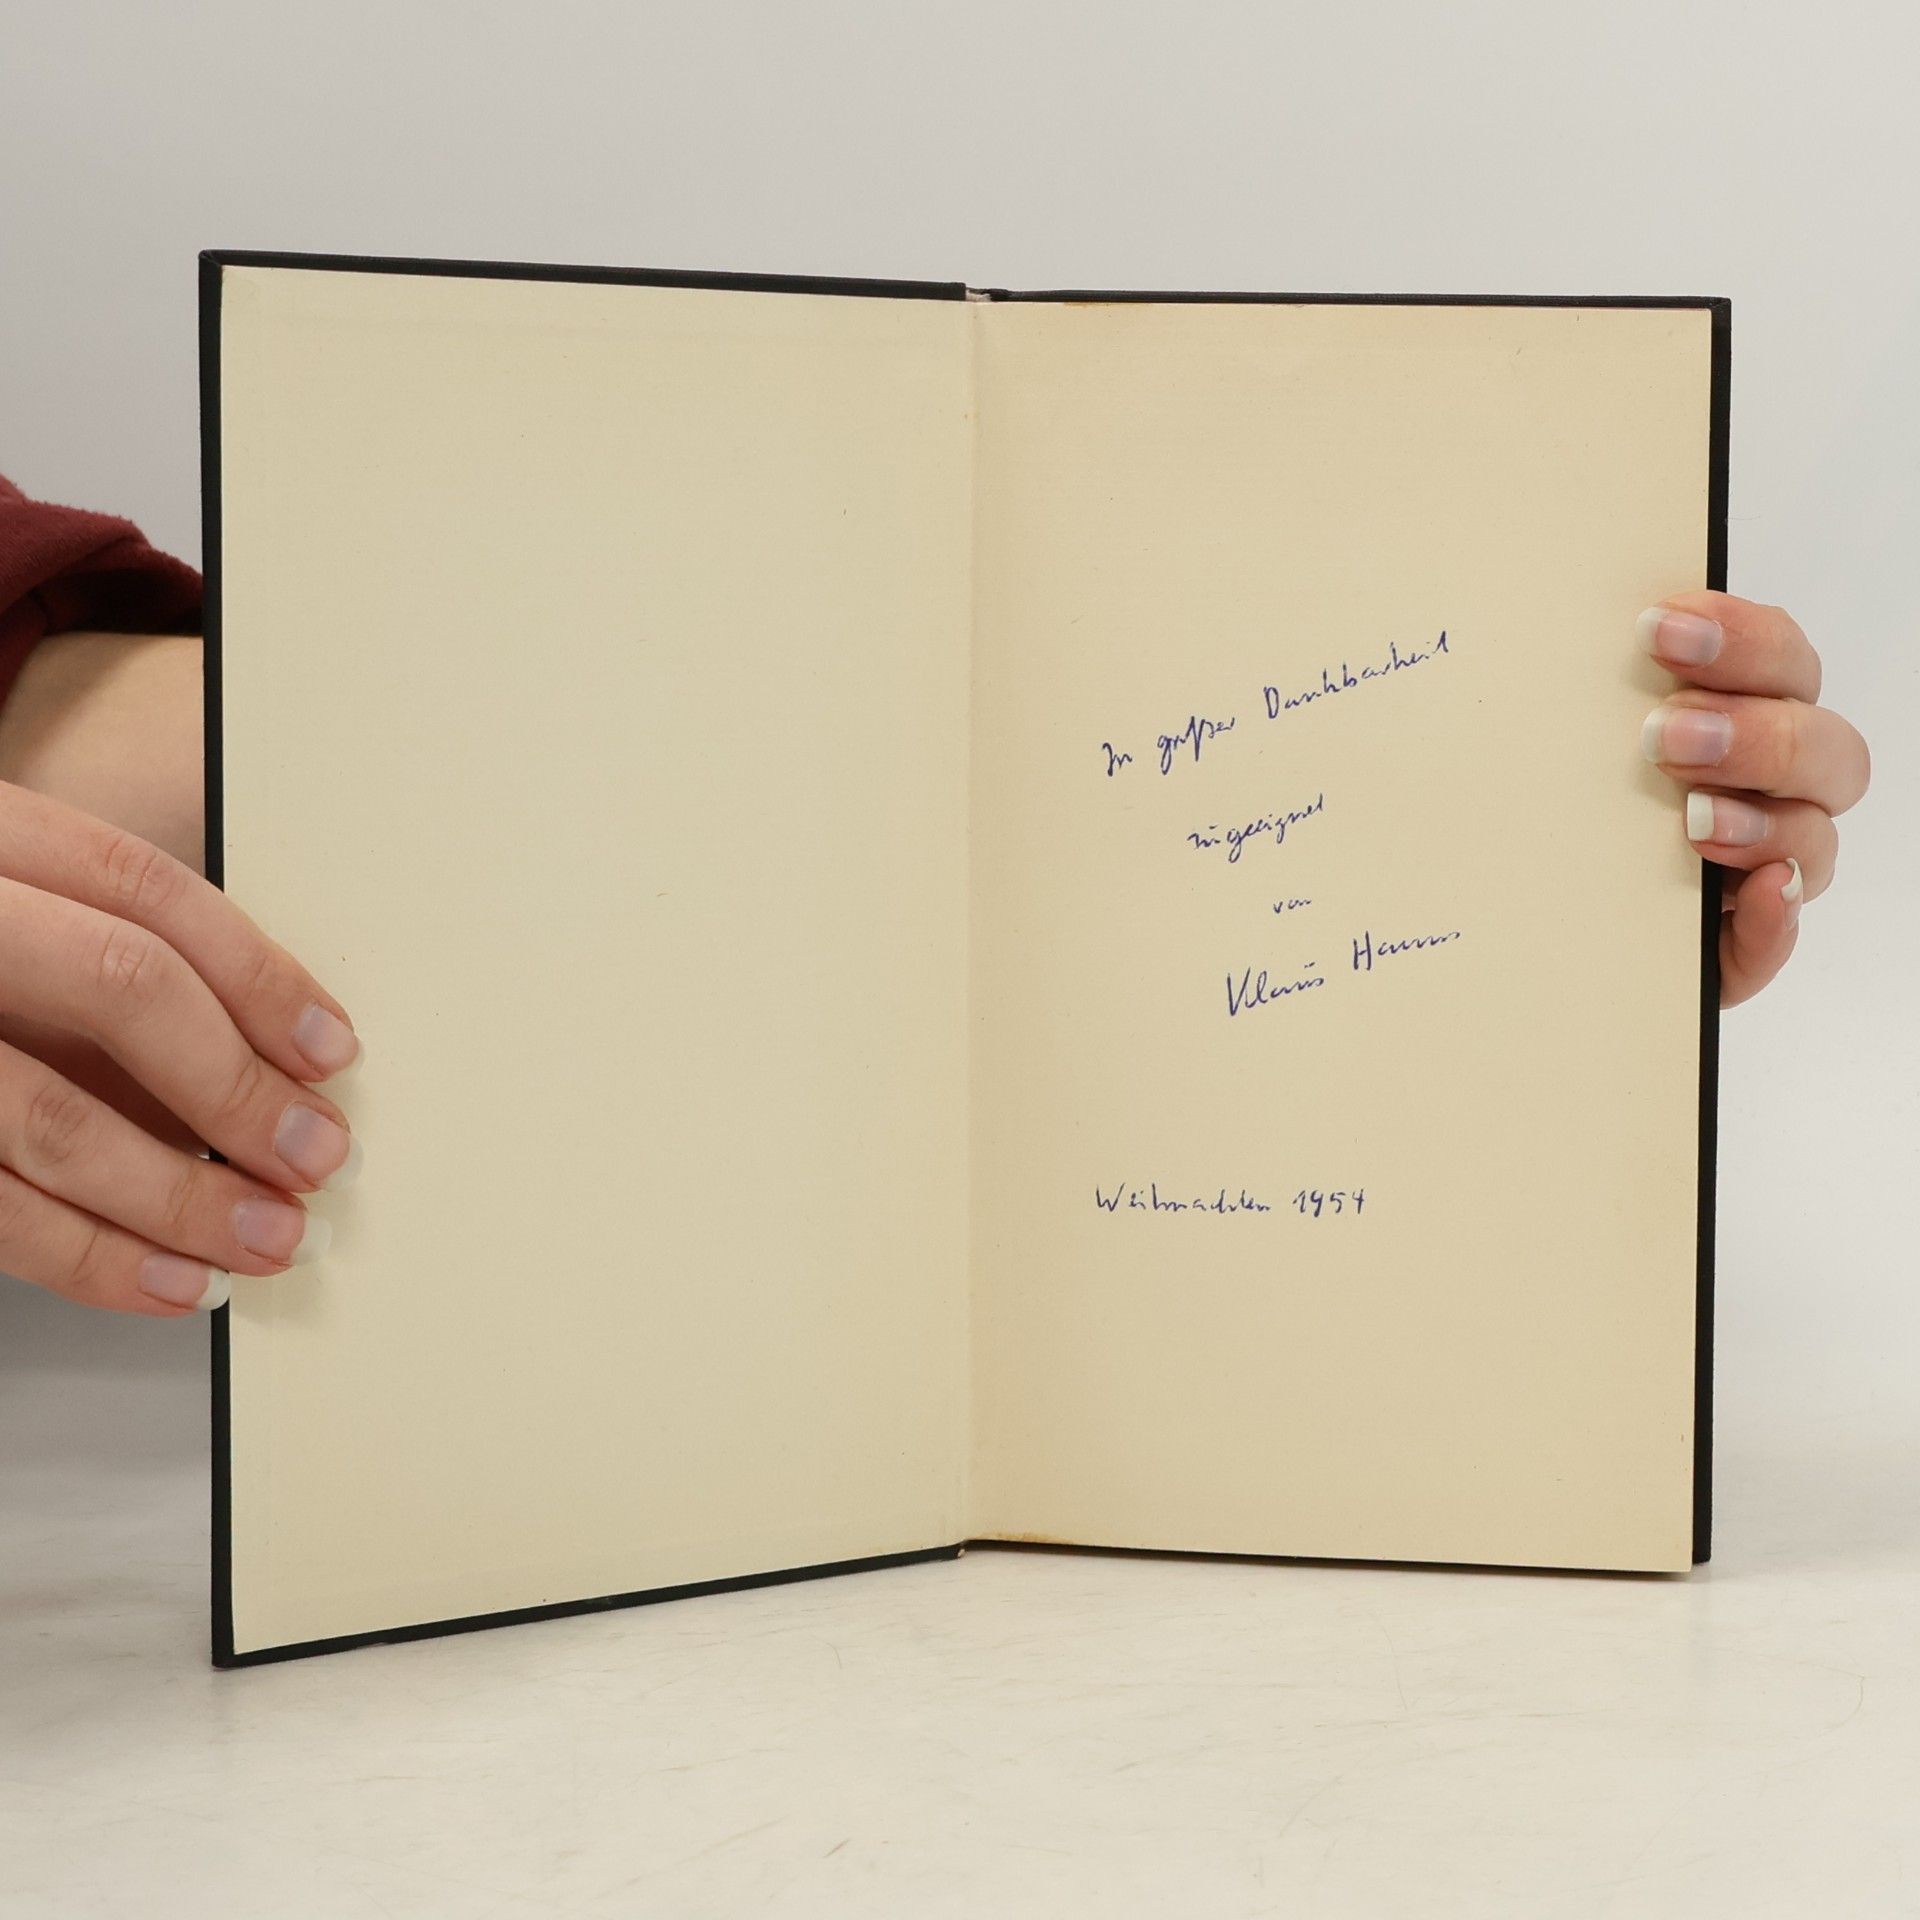 In großer Dankbarkeit
zugeeignet
von
Klaus Hanns
Weihnachten 1954